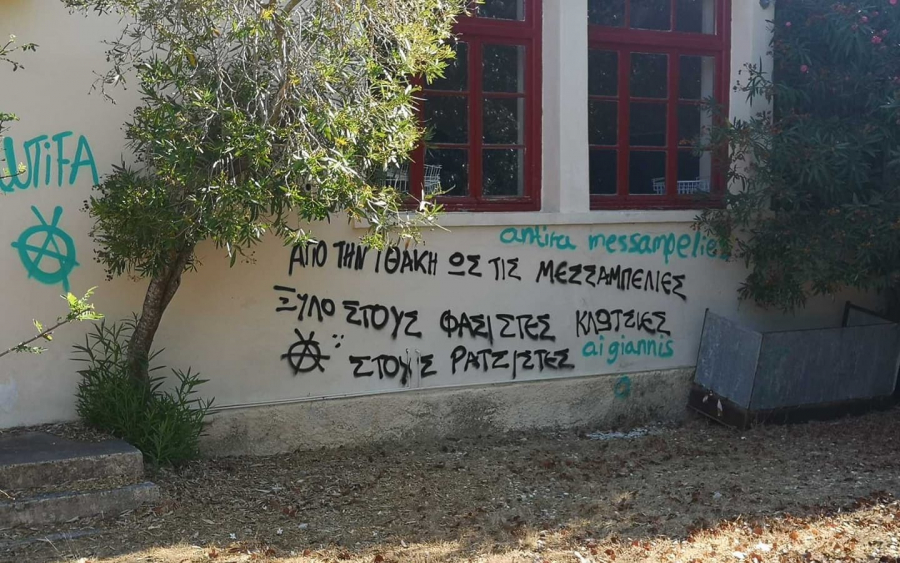 ANTIFA
antifa messampelies
ΑΠΟ ΤΗΝ ΙΘΑΚΗ ΩΣ ΤΙΣ ΜΕΣΣΑΜΠΕΛΙΕΣ
ΞΥΛΟ ΣΤΟΥΣ ΦΑΣΙΣΤΕΣ ΚΛΩΤΣΙΕΣ
ΣΤΟΥΣ ΡΑΤΣΙΣΤΕΣ
ai giannis